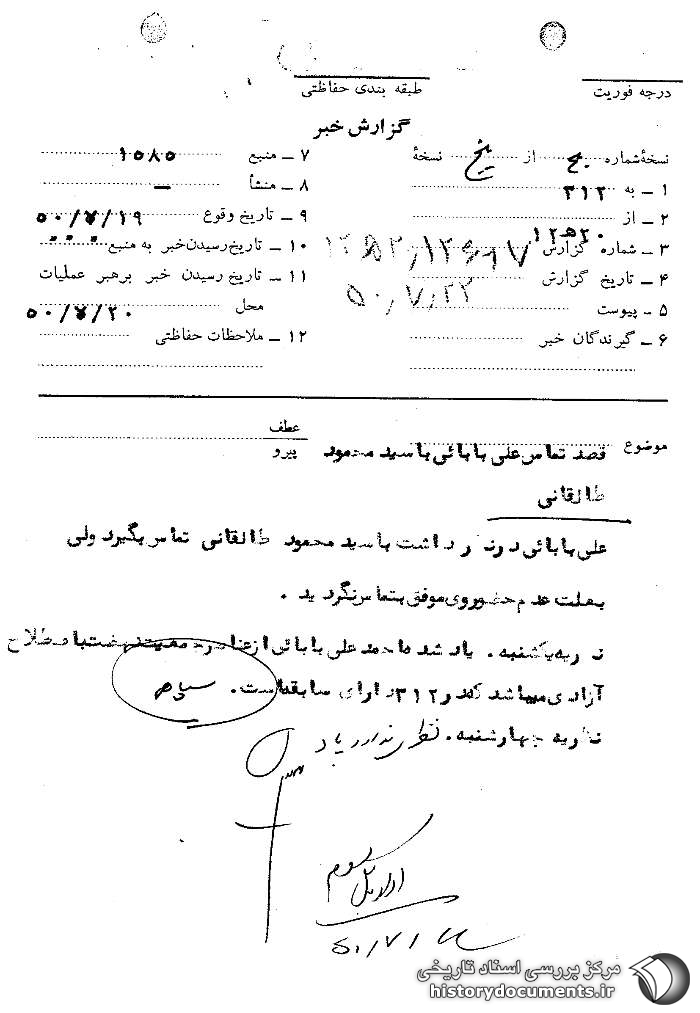 درجه فوریت
طبقه بندی حفاظتی
گزارش خبر
نسخهٔ شماره از پنج نسخهٔ
۱ ـ به ۳۱۲
۲ ـ از ۱۲ﻫ۲۰
۳ ـ شماره گزارش
۴ ـ تاریخ گزارش ۵۰/۷/۲۲
۵ ـ پیوست
۶ ـ گیرندگان خبر
۷ ـ منبع ۱۵۸۵
۸ ـ منشأ ـ
۹ ـ تاریخ وقوع ۵۰/۷/۱۹
۱۰ ـ تاریخ رسیدن خبر به منبع
۱۱ ـ تاریخ رسیدن خبر برهبر عملیات
محل ۵۰/۷/۲۰
۱۲ ـ ملاحظات حفاظتی
موضوع قصد تماس علی بابائی با سید محمود
عطف
پیرو
طالقانی
علی بابائی در نظر داشت با سید محمود طالقانی تماس بگیرد ولی
بعلت عدم حضور وی موفق بتماس نگردید .
نظریه یکشنبه . یاد شده احمد علی بابائی از عناصر جمعیت نهضت باصطلاح
آزادی میباشد که در ۳۱۲ دارای سابقه است .
نظریه چهارشنبه . نظری ندارد
۵۰/۷/
مرکز بررسی اسناد تاریخی
historydocuments.ir